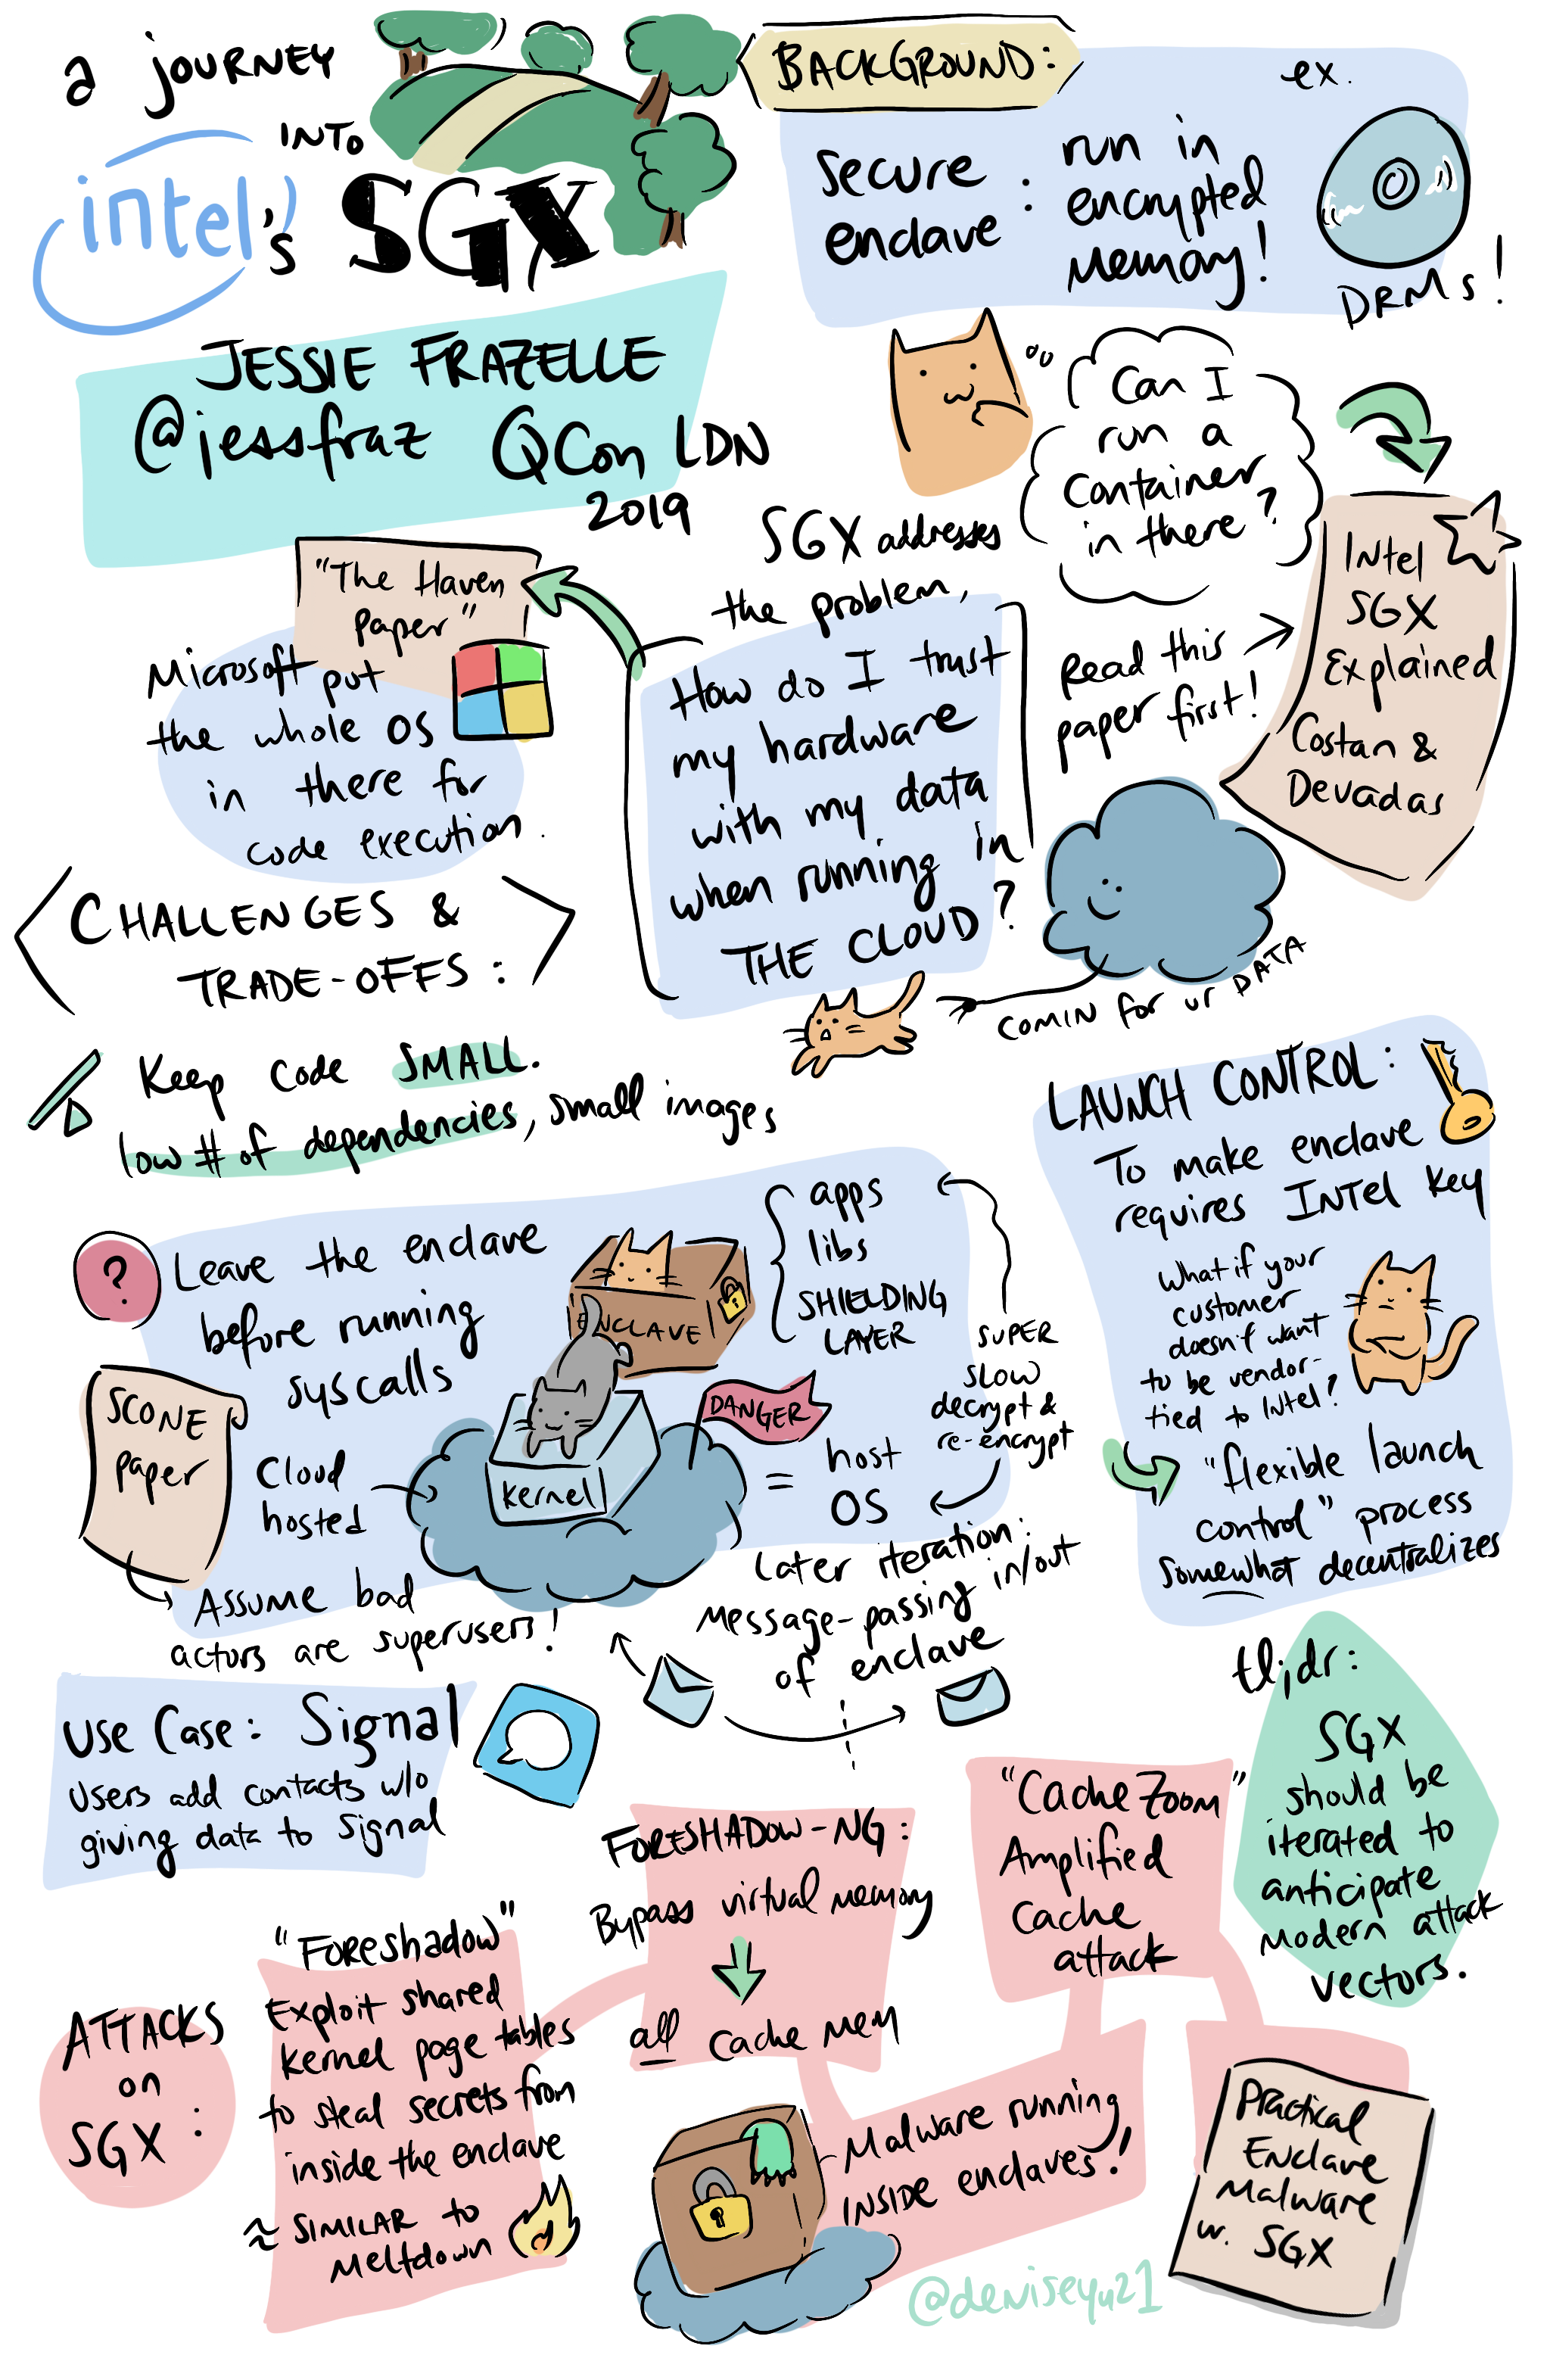 a JOURNEY
INTO
intel's SGX
JESSIE FRAZELLE
@jessfraz QCon LDN
2019
BACKGROUND:
secure
enclave
:
run in
encrypted
memory!
ex.
DRMs!
Can I
run a
container
in there?
SGX addresses
the problem,
How do I trust
my hardware
with my data
when running in
THE CLOUD?
Read this
paper first!
Intel
SGX
Explained
Costan &
Devadas
COMIN for ur DATA
"The Haven
Paper"
Microsoft put
the whole OS
in there for
code execution.
CHALLENGES &
TRADE-OFFS:
Keep code SMALL.
low # of dependencies, small images
?
Leave the enclave
before running
syscalls
ENCLAVE
apps
libs
SHIELDING
LAYER
SUPER
SLOW
decrypt &
re-encrypt
DANGER
kernel
= host
OS
SCONE
paper
Cloud
hosted
Assume bad
actors are superusers!
Later iteration:
message-passing in/out
of enclave
LAUNCH CONTROL:
To make enclave
requires INTEL key
What if your
customer
doesn't want
to be vendor-
tied to Intel?
"flexible launch
control" process
somewhat decentralizes
Use Case: Signal
users add contacts w/o
giving data to signal
tl;dr:
SGX
should be
iterated to
anticipate
modern attack
vectors.
ATTACKS
on
SGX:
"Foreshadow"
Exploit shared
kernel page tables
to steal secrets from
inside the enclave
≈ SIMILAR to
meltdown
FORESHADOW-NG:
Bypass virtual memory
all cache mem
"Cache Zoom"
Amplified
cache
attack
Malware running
INSIDE enclaves!
Practical
Enclave
Malware
w. SGX
@deniseyu21